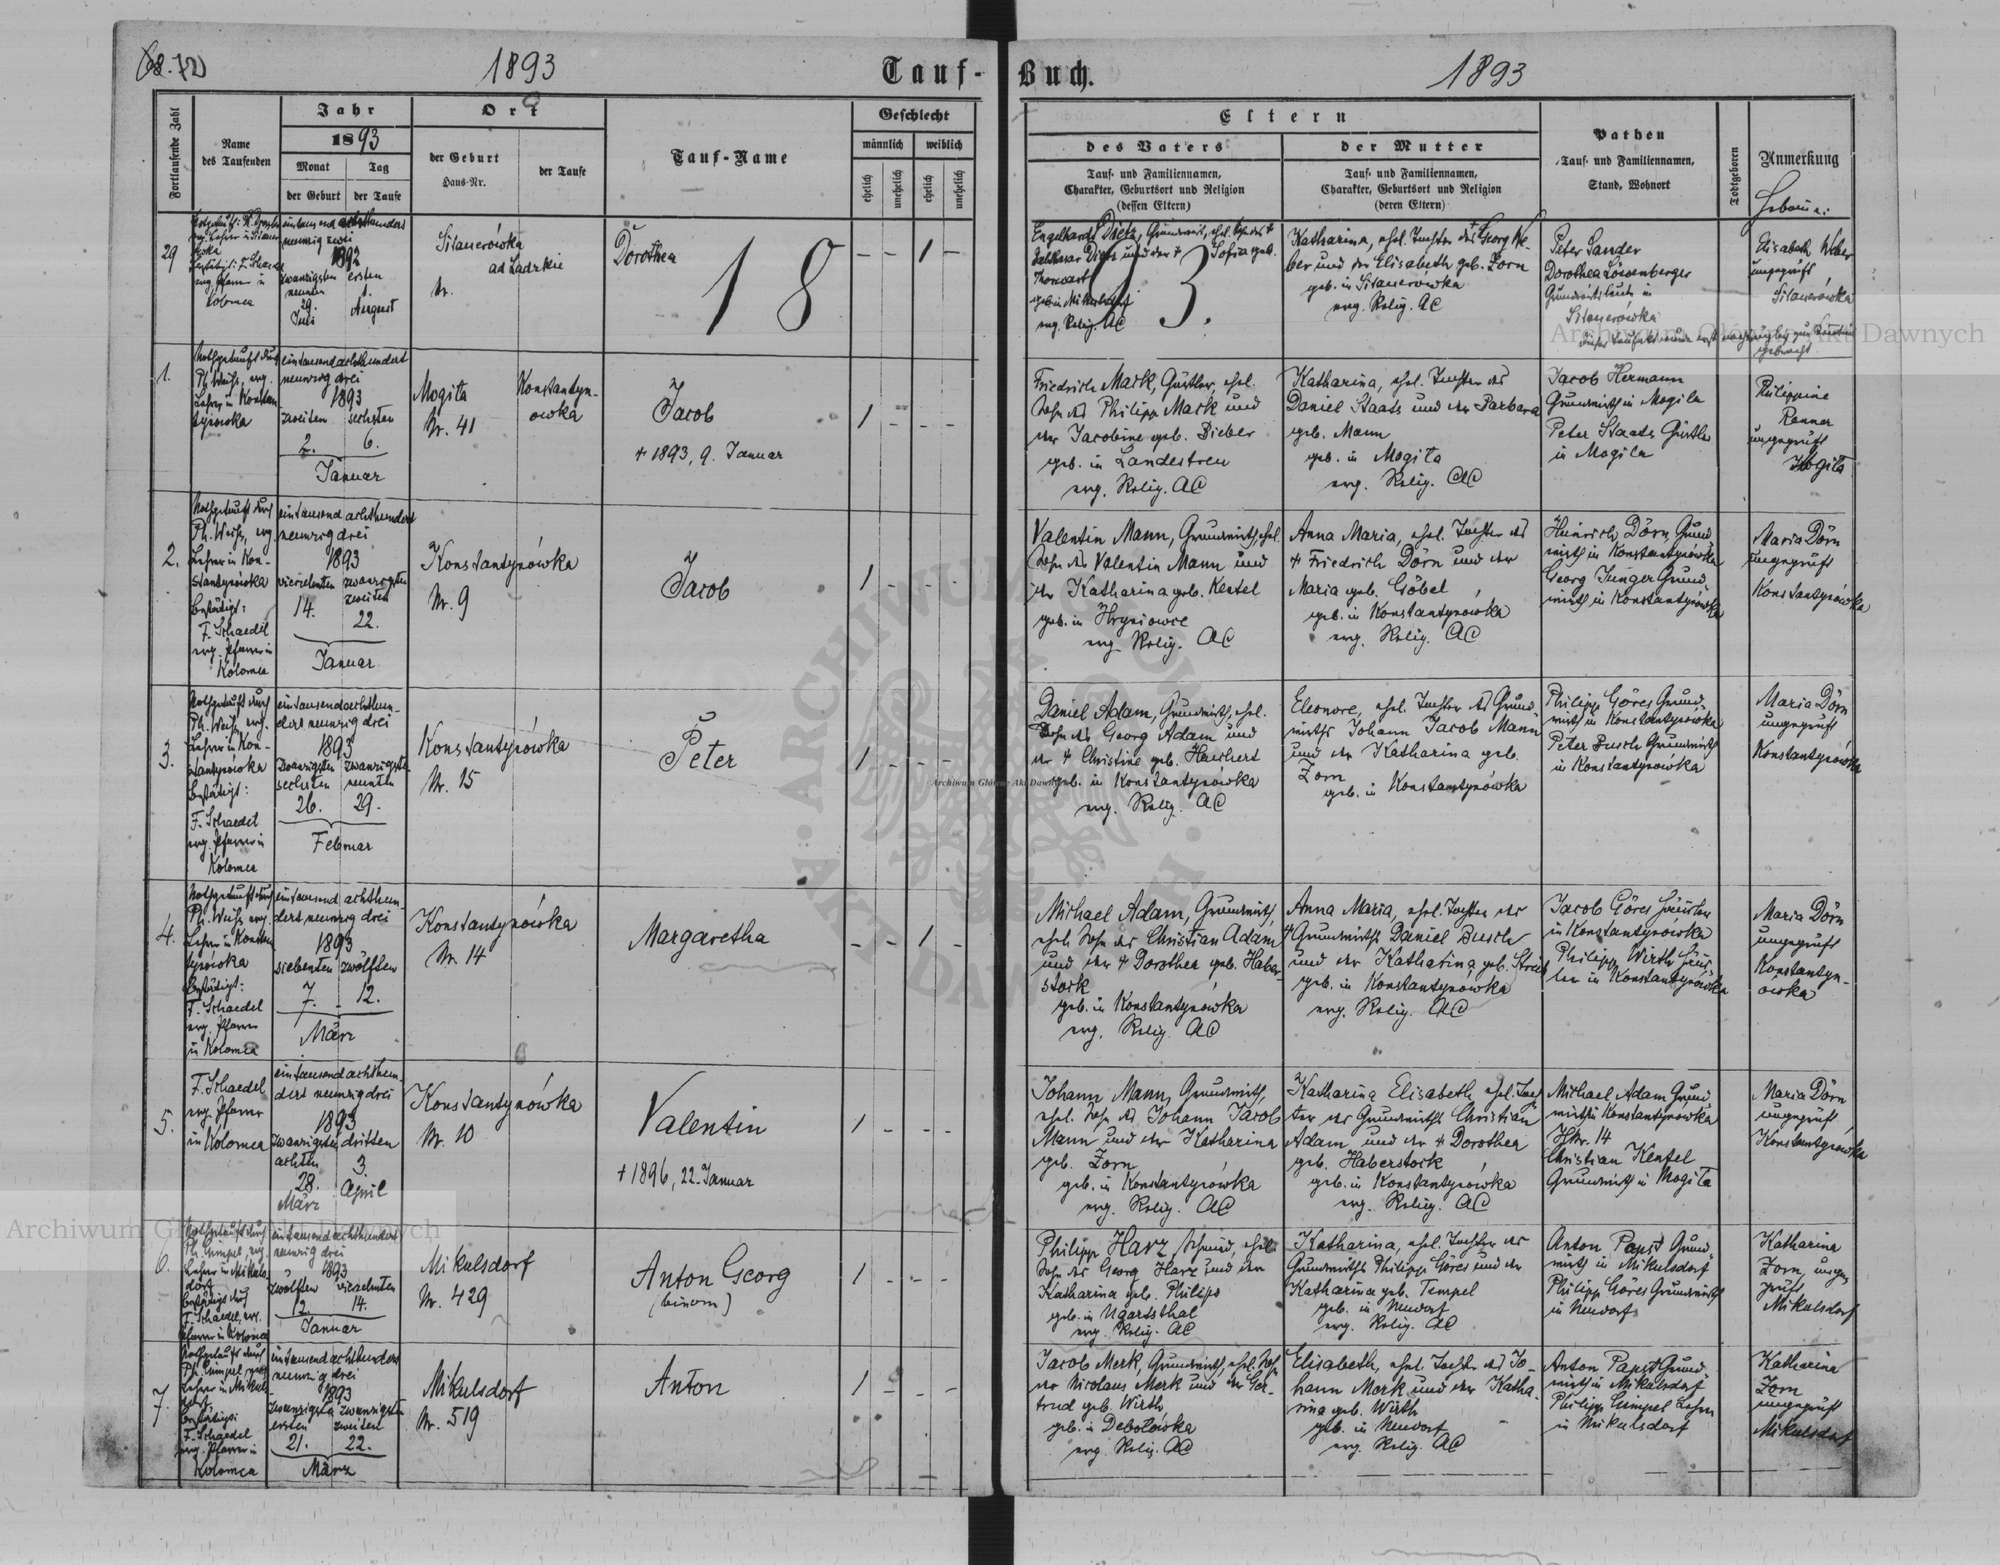 68.72
1893
Tauf-
Buch.
1893
Fortlaufende Zahl
Name
des Taufenden
Jahr
1893
Monat
Tag
der Geburt
der Taufe
Ort
der Geburt
Haus-Nr.
der Taufe
Tauf-Name
Geschlecht
männlich
weiblich
ehelich
unehelich
ehelich
unehelich
Eltern
des Vaters
Tauf- und Familiennamen,
Charakter, Geburtsort und Religion
(dessen Eltern)
der Mutter
Tauf- und Familiennamen,
Charakter, Geburtsort und Religion
(deren Eltern)
Pathen
Tauf- und Familiennamen,
Stand, Wohnort
Todtgeboren
Anmerkung
29
neunzig zwei
1892
zwanzigsten ersten
neunten 1.
29.
Juli August
Kolomea
Nr.
Dorothea
- - 1 -
1893.
Engelhardt Dietz, Grundwirt, ehel. Sohn des +
Balthasar Dietz und der + Sofia geb.
geb. in Mikulsdorf
evg. Relig. AC
Katharina, ehel. Tochter des Georg We-
ber und der Elisabeth geb. Zorn
evg. Relig. AC
Peter Sander
Dorothea Löwenberger
Grundwirtsleute in
Elisabeth Weber
ungeprüft
1.
Nothgetauft durch
Ph. Weihs, evg.
Lehrer in Konstan-
tynowka
eintausend achthundert
neunzig drei
1893
zweiten sechsten
2. 6.
Januar
Mogila
Nr. 41
Konstantyn-
owka
Jacob
+ 1893, 9. Januar
1 - - -
Friedrich Mark, Gärtler, ehel.
Sohn des Philipp Mark und
der Jacobine geb. Bieber
geb. in Landestreu
evg. Relig. AC
Katharina, ehel. Tochter des
Daniel Staats und der Barbara
geb. Mann
geb. in Mogila
evg. Relig. AC
Jacob Hermann
Grundwirth in Mogila
Peter Staats Gärtler
in Mogila
Philippine
Renner
ungeprüft
Mogila
2.
Nothgetauft durch
Ph. Weihs, evg.
Lehrer in Kon-
stantynowka
Bestätigt:
F. Schaedel
evg. Pfarrer in
Kolomea
eintausend achthundert
neunzig drei
1893
vierzehnten zwanzigsten
zweiten
14. 22.
Januar
Konstantynówka
Nr. 9
Jacob
1 - - -
Valentin Mann, Grundwirth, ehel.
Sohn des Valentin Mann und
der Katharina geb. Kentel
geb. in Hryniowce
evg. Relig. AC
Anna Maria, ehel. Tochter des
+ Friedrich Dörn und der
Maria geb. Göbel
geb. in Konstantynówka
evg. Relig. AC
Heinrich Dörn Grund-
wirth in Konstantynówka
Georg Junger Grund-
wirth in Konstantynówka
Maria Dörn
ungeprüft
Konstantynówka
3.
Nothgetauft durch
Ph. Weihs, evg.
Lehrer in Kon-
stantynówka
Bestätigt:
F. Schaedel
evg. Pfarrer in
Kolomea
eintausend achthun-
dert neunzig drei
1893
zwanzigsten zwanzigsten
sechsten neunten
26. 29.
Februar
Konstantynówka
Nr. 15
Peter
1 - - -
Daniel Adam, Grundwirth, ehel.
Sohn des Georg Adam und
der + Christine geb. Heuchert
geb. in Konstantynówka
evg. Relig. AC
Eleonore, ehel. Tochter des Grund-
wirths Johann Jacob Mann
und der Katharina geb.
Zorn
geb. in Konstantynówka
Philipp Göres Grund-
wirth in Konstantynówka
Peter Busch Grundwirth
in Konstantynówka
Maria Dörn
ungeprüft
Konstantynówka
4.
Nothgetauft durch
Ph. Weihs evg.
Lehrer in Konstan-
tynówka
Bestätigt:
F. Schaedel
evg. Pfarrer
in Kolomea
eintausend achthun-
dert neunzig drei
1893
siebenten zwölften
7. 12.
März
Konstantynówka
Nr. 14
Margaretha
- - 1 -
Michael Adam, Grundwirth,
ehel. Sohn des Christian Adam
und der + Dorothea geb. Haber-
stock
geb. in Konstantynówka
evg. Relig. AC
Anna Maria, ehel. Tochter des
+ Grundwirths Daniel Busch
und der Katharina geb.
geb. in Konstantynówka
evg. Relig. AC
Jacob Göres Häusler
in Konstantynówka
Philipp Wirth Häus-
ler in Konstantynówka
Maria Dörn
ungeprüft
Konstantyn-
owka
5.
F. Schaedel
evg. Pfarrer
in Kolomea
eintausend achthun-
dert neunzig drei
1893
zwanzigsten dritten
achten 3.
28. April
März
Konstantynówka
Nr. 10
Valentin
+ 1896, 22. Januar
1 - - -
Johann Mann, Grundwirth,
ehel. Sohn des Johann Jacob
Mann und der Katharina
geb. Zorn
geb. in Konstantynówka
evg. Relig. AC
Katharina Elisabeth ehel. Toch-
ter des Grundwirths Christian
Adam und der + Dorothea
geb. Haberstock
geb. in Konstantynówka
evg. Relig. AC
Michael Adam Grund-
wirth in Konstantynówka
HNr. 14
Christian Kentel
Grundwirth in Mogila
Maria Dörn
ungeprüft
Konstantynówka
6.
Nothgetauft durch
Ph. Gumpel, evg.
Lehrer in Mikuls-
dorf
Bestätigt durch
F. Schaedel, evg.
Pfarrer in Kolomea
eintausend achthundert
neunzig drei
1893
zwölften vierzehnten
12. 14.
Januar
Mikulsdorf
Nr. 429
Anton Georg
(binom)
1 - - -
Philipp Harz, Schmied, ehel.
Sohn des Georg Harz und der
Katharina geb. Philips
geb. in Ugartsthal
evg. Relig. AC
Katharina, ehel. Tochter des
Grundwirths Philipp Göres und der
Katharina geb. Tempel
geb. in Neudorf
evg. Relig. AC
Anton Papst Grund-
wirth in Mikulsdorf
Philipp Göres Grundwirth
in Neudorf
Katharina
Zorn, unge-
prüft
Mikulsdorf
7.
Nothgetauft durch
Ph. Gumpel, evg.
Lehrer in Mikuls-
dorf
Bestätigt:
F. Schaedel
evg. Pfarrer in
Kolomea
eintausend achthundert
neunzig drei
1893
zwanzigsten zwanzigsten
ersten zweiten
21. 22.
März
Mikulsdorf
Nr. 519
Anton
1 - - -
Jacob Merk, Grundwirth, ehel. Sohn
des Nicolaus Merk und der Ger-
trud geb. Wirth
geb. in Debolówka
evg. Relig. AC
Elisabeth, ehel. Tochter des Jo-
hann Merk und der Katha-
rina geb. Wirth
geb. in Neudorf
evg. Relig. AC
Anton Papst Grund-
wirth in Mikulsdorf
Philipp Gumpel Lehrer
in Mikulsdorf
Katharina
Zorn
ungeprüft
Mikulsdorf
Archiwum Główne Akt Dawnych
Archiwum Główne Akt Dawnych
Archiwum Główne Akt Dawnych